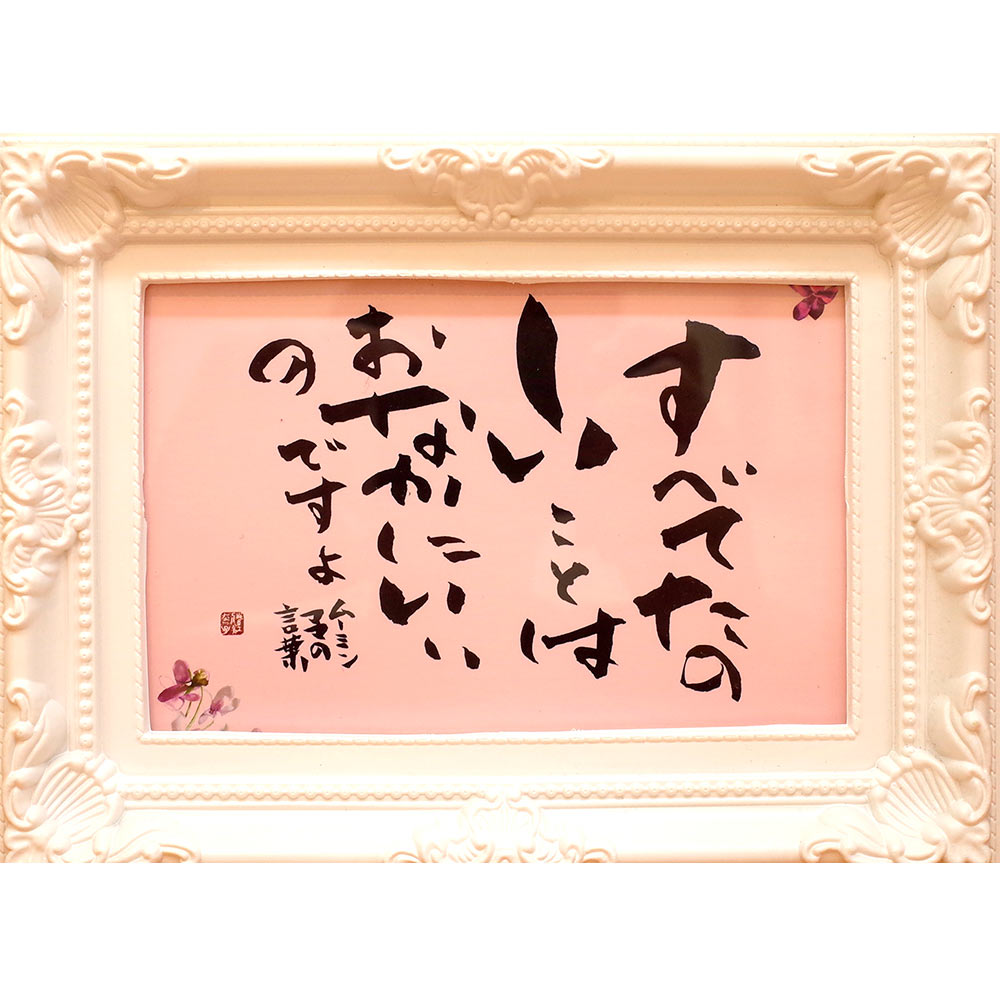 すべてたの
しいことは
おなかにいい
のですよ
ムーミン
ママの
言葉